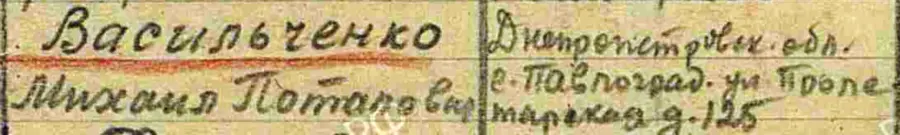 Васильченко
Михаил Потапович
Днепропетровск. обл.
г. Павлоград. ул Проле
тарская д. 125